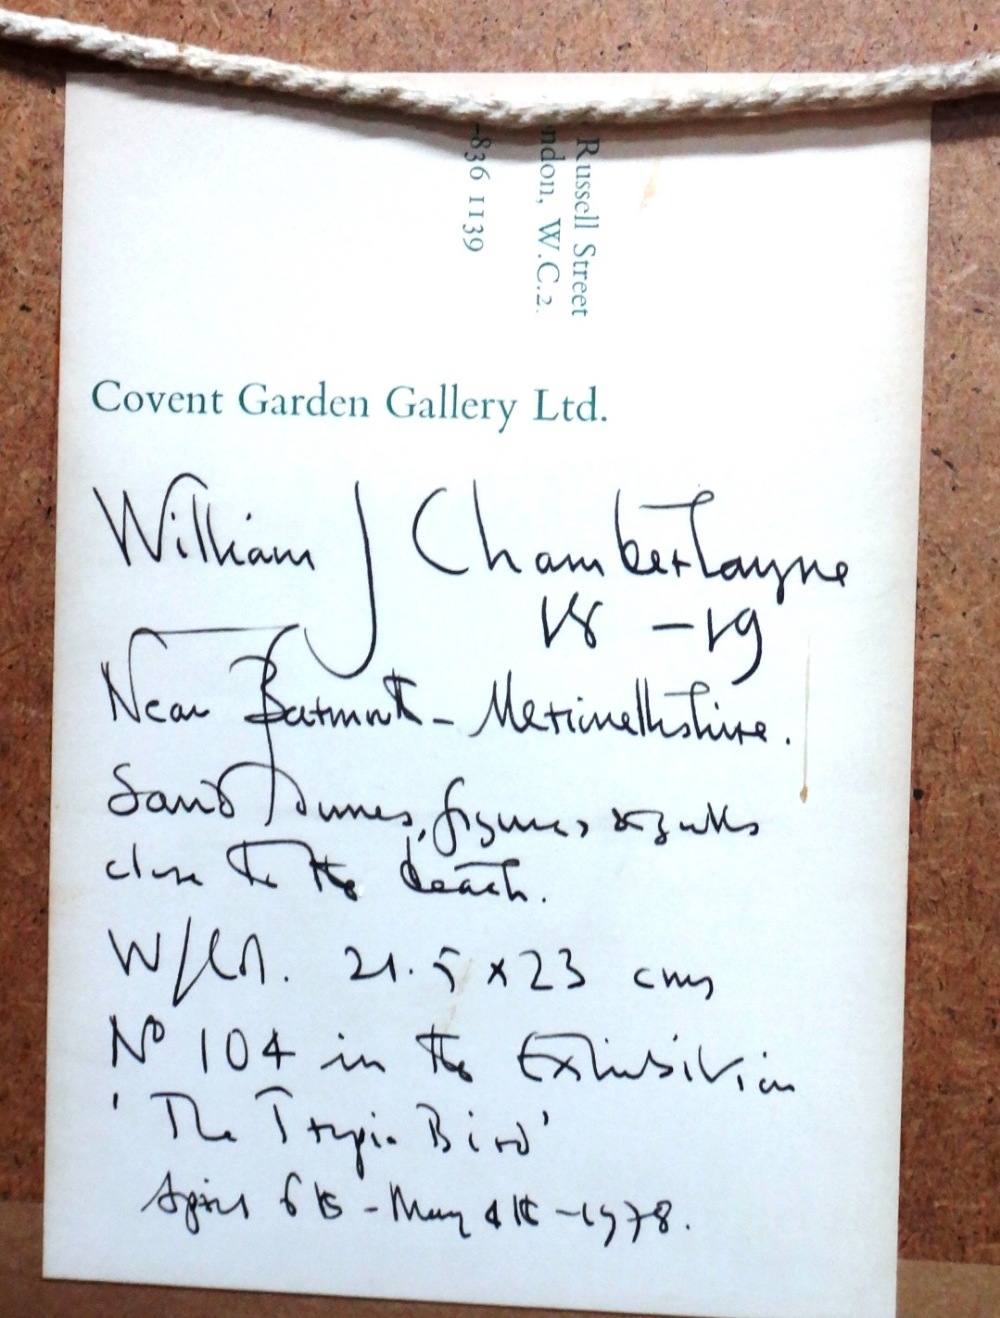 Russell Street
ndon, W.C.2.
-836 1139
Covent Garden Gallery Ltd.
William J Chamberlayne
18 - 19
Near Barmouth - Merionethshire.
Sand dunes, figures & gulls
close to the beach.
W/Col. 21.5 x 23 cms
Nº 104 in the Exhibition
'The Tropic Bird'
April 6th - May 4th - 1978.